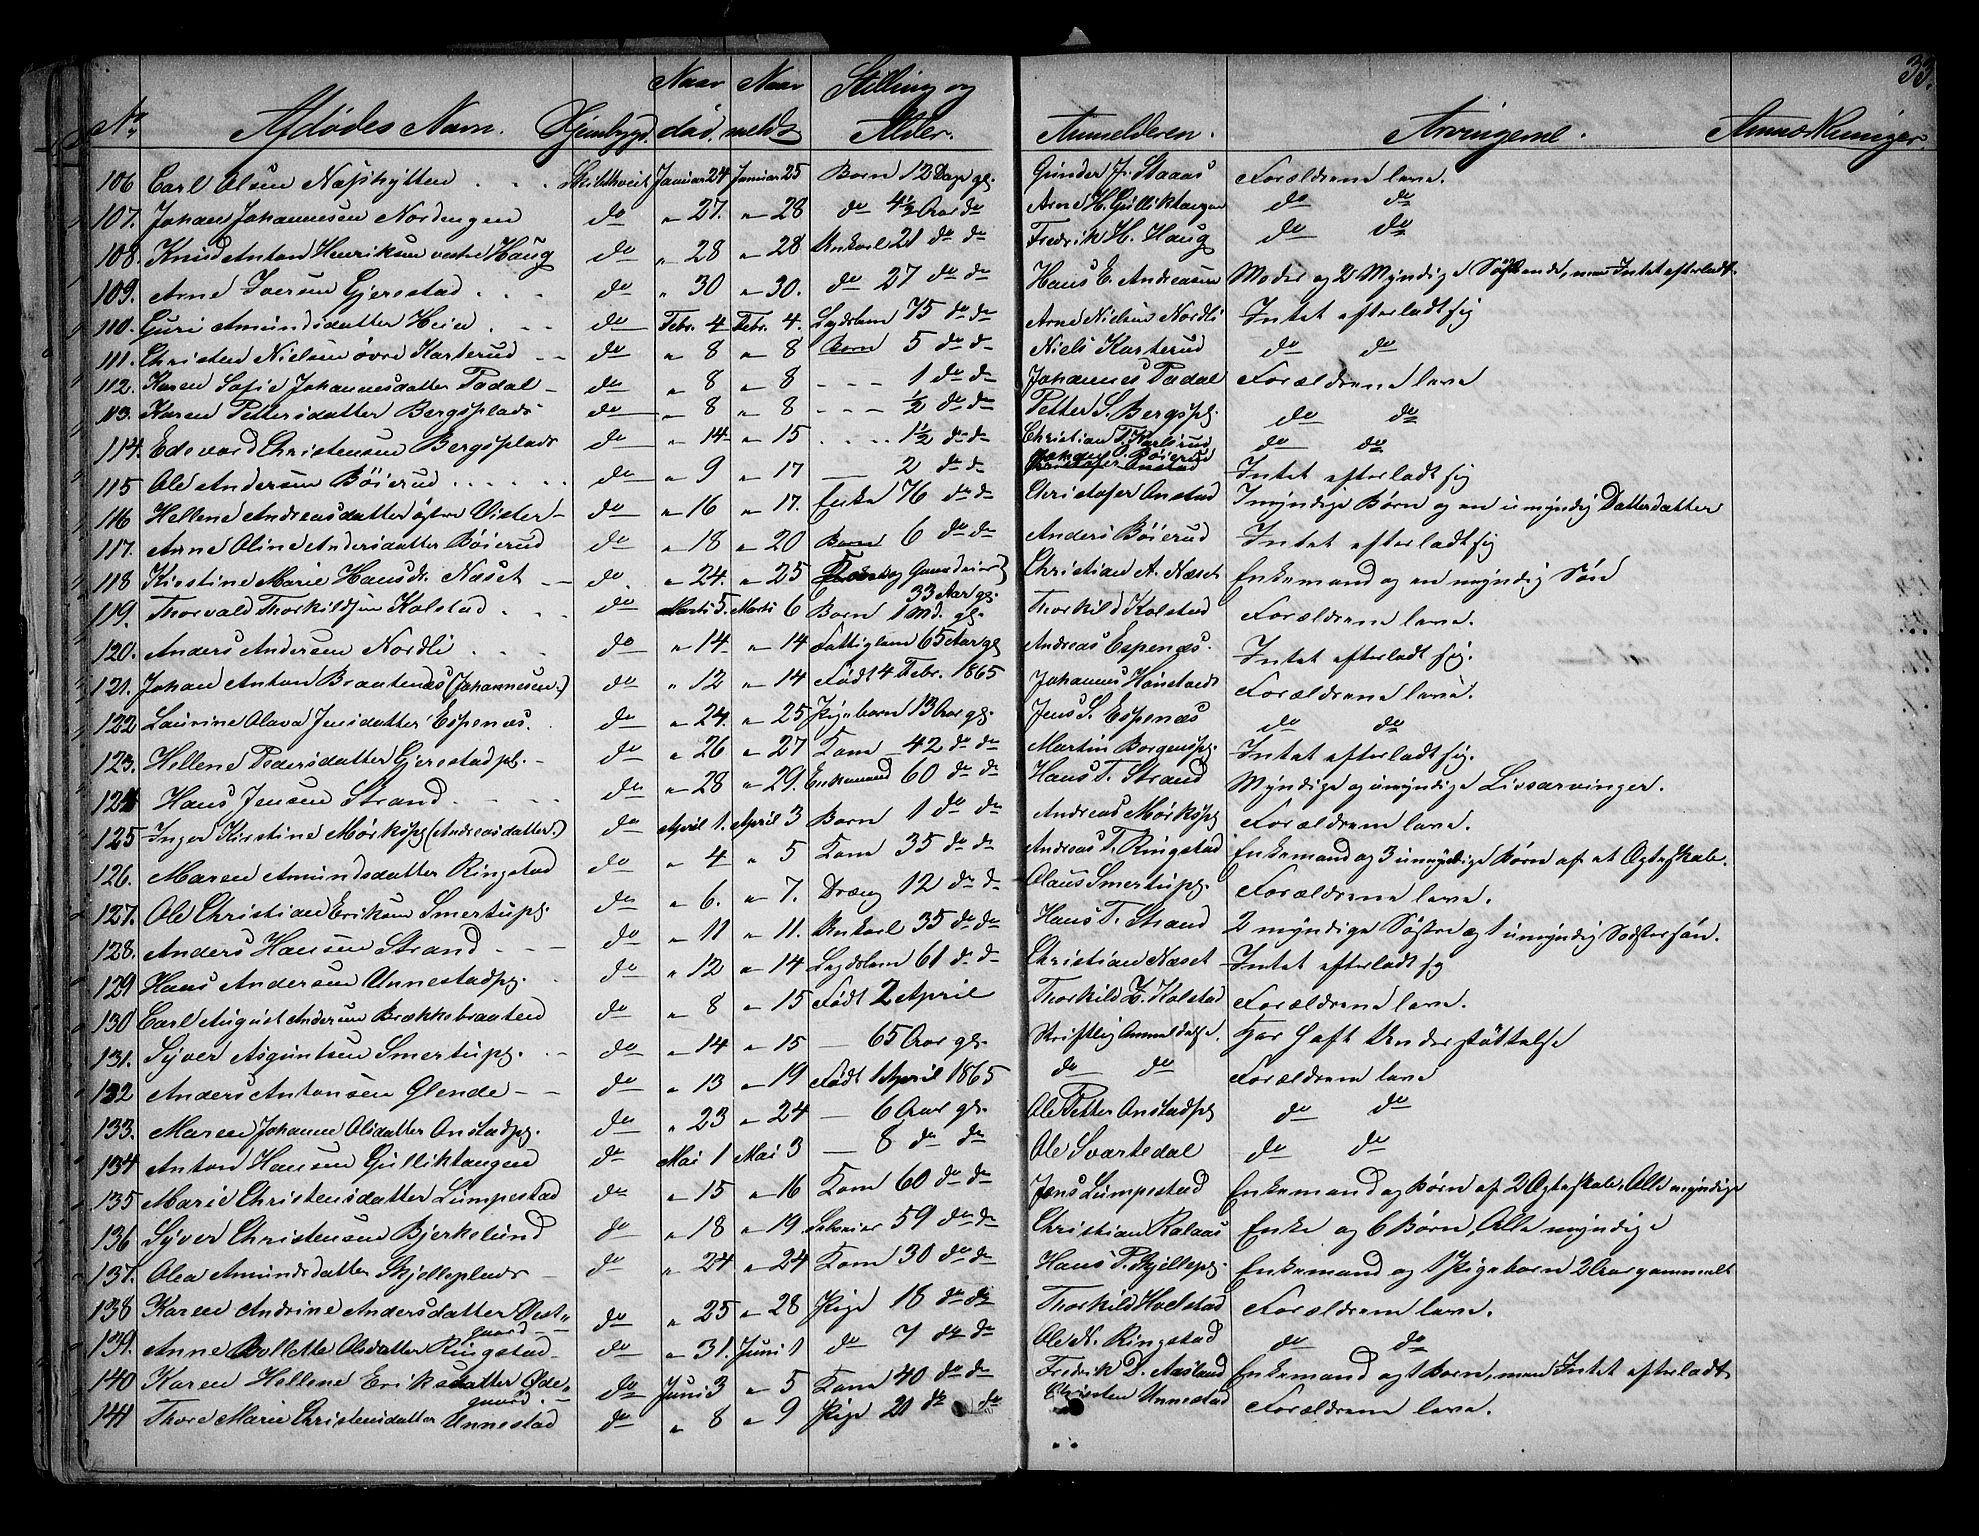 33.
No. Afdødes Navn. Hjembygd. Naar død. Naar meldt Stilling og Alder. Anmelderen. Arvingerne. Anmærkninger
106 Carl Olsen Næshytten . . . Skibthveit Januar 24 Januar 25 Barn 13 Dage gl. Gunder J. Staaas Forældrene leve.
107. Johan Johannesen Nordengen do " 27. " 28 do 4½ Aar do Arne H. Gulliktangen do do
108. Knud Anton Henriksen vestre Haug do " 28 " 28 Unkarl 21 do do Fredrik H. Haug do do
109. Arne Iversen Gjerestad . . . do " 30 " 30. do 27 do do Hans E. Andreasen Moder og 2 Myndige Søskende, men Intet efterladt.
110. Guri Amundsdatter Heier . - - do Febr. 4 Febr. 4. Lægdslem 75 do do Arne Nielsen Nordli Intet efterladt sig
111. Christen Nielsen øvre Karterud - - do " 8 " 8 Barn 5 do do Niels Karterud do do
112. Karen Sofie Johannesdatter Tadal - do " 8 " 8 - - - 1 do do Johannes Tadal Forældrene leve
113. Karen Pettersdatter Bergsplads do " 8 " 8 - - - ½ do do Petter S. Bergspl. do do
114. Edevard Christensen Bergsplads do " 14 " 15 . . . . 1½ do do Christian T. Karlsrud do do
115 Ole Andersen Böierud . . . . . . do " 9 " 17 — 2 do do Böierud Intet efterladt sig
116 Hellene Andreasdatter østre Vister - do " 16 " 17. Enke 76 do do Christofer Onstad Myndige Børn og en umyndig Datterdatter
117. Anne Oline Andersdatter Böierud do " 18 " 20 Barn 6 do do Anders Böierud Intet efterladt sig
118 Kirstine Marie Hansdr. Næset - - do. " 24. " 25 33 Aar gl. Christian A. Næset Enkemand og en myndig Søn
119. Thorvald Thorkildsen Kolstad . . do Marts 5. Marts 6 Barn 1 Md. gl. Thorkild Kolstad Forældrene leve.
120. Anders Andersen Nordli . . . do " 14 " 14 Fattiglem 65 Aar gl Andreas Espenæs. Intet efterladt sig.
121. Johan Anton Braatenes (Johannesen.) do " 12 " 14 Født 4 Febr. 1865 Johannes Hanstads Forældrene leve.
122 Laurine Olava Jensdatter Espenæs. do " 24. " 25 Pigebarn 13 Aar gl. Jens S. Espenæs do do
123. Hellene Pedersdatter Gjerestadpl. - do " 26 " 27 Kone 42 do do Martin Borgenspl. Intet efterladt sig.
124 Hans Jensen Strand . - - - do " 28 " 29. Enkemand 60 do do Hans T. Strand Myndige og umyndige Livsarvinger.
125 Inger Kirstine Mørkspl (Andreasdatter.) do April 1. April 3 Barn 1 do do Andreas Mørkspl Forældrene leve.
126. Maren Amundsdatter Ringstad do " 4 " 5 Kone 35 do do Andreas T. Ringstad Enkemand og 3 umyndige Børn af et Ægteskab.
127. Ole Christian Eriksen Smertupl. do " 6. " 7. Dreng 12 do do Olaus Smertupl. Forældrene leve.
128. Anders Hansen Strand . - - do " 11 " 11. Unkarl 35 do do Hans T. Strand 2 myndige Søstre og 1 umyndig Søstersøn.
129 Hans Andersen Unnestadpl. . do " 12 " 14 Lægdslem 61 do do Christian Næset Intet efterladt sig
130 Carl August Andersen Brækkebraaten do " 8 " 15 Født 2 April Thorkild T. Kolstad Forældrene leve.
131. Syver Asguntsen Smertupl. . - do " 14 " 15 — 65 Aar gl. Skriftlig Anmeldelse. Har haft Understøttelse
132 Anders Antonsen Glende - - do " 13 " 19 Født 1 April 1865 do do Forældrene leve
133. Maren Johanne Olsdatter Onstadpl. do " 23 " 24 — 6 Aar gl. Ole Petter Onstadpl do do
134 Anton Hansen Gulliktangen do Mai 1 Mai 3 — 8 do do Ole Svartedal do do
135 Marie Christensdatter Lumpestad do " 15 " 16 Kone 60 do do Jens Lumpestad Enkemand og Børn af 2 Ægteskab, Alle myndige
136 Syver Christensen Bjerkelund do " 18 " 19 Selveier 59 do do Christian Ralaas Enke og 6 Børn, Alle myndige
137. Olea Amundsdatter Skjelleplads - do " 24 " 24 Kone 30 do do Hans P. Skjellepl. Enkemand og 1 Pigebarn 2 Aar gammelt
138 Karen Andrine Andersdatter Vest„ do " 25 " 28 Pige 18 do do Thorkild Hvelstad Forældrene leve.
gaard -
139. Anne Bollette Olsdatter Ringstad - do " 31. Juni 1 do 7 do do Ole N. Ringstad do do
140 Karen Hellene Eriksdatter Øde„ do Juni 3 " 5 Kone 40 do do Fredrik D. Aasland Enkemand og 1 Barn, men Intet efterladt
gaard. -
141 Thore Marie Christensdatter Unnestad do " 8 " 9 Pige 21 do do Christen Unnestad Forældrene leve.